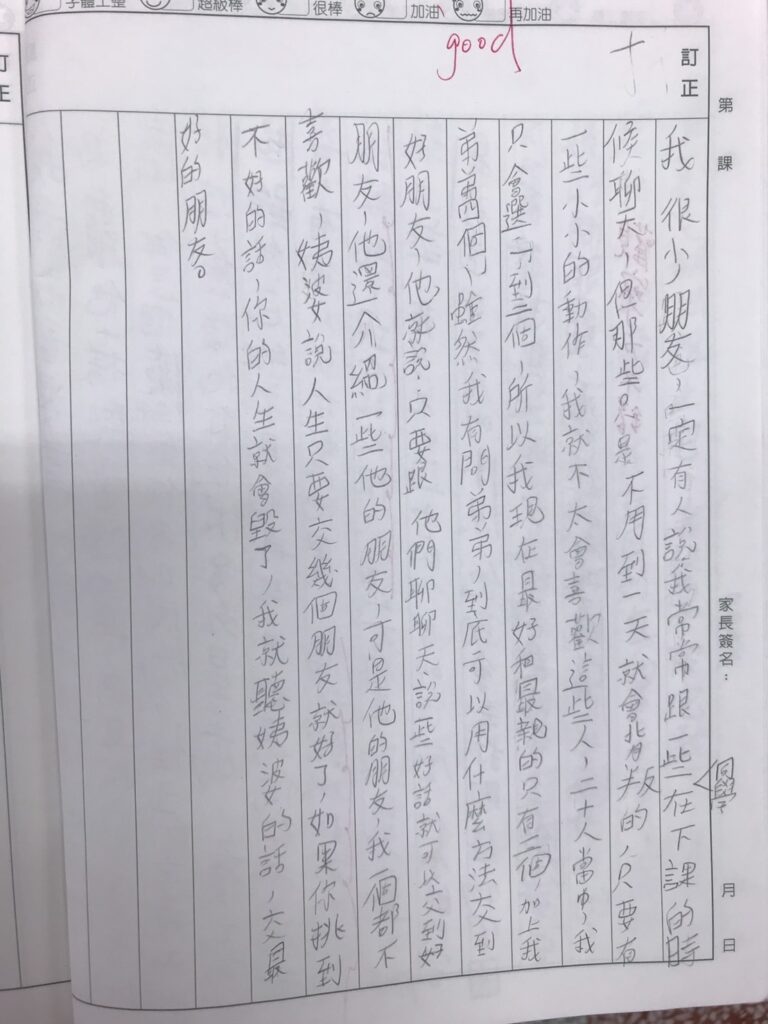 字體工整 超級棒 很棒 加油 再加油
good
訂正
第 課 家長簽名： 月 日
我很少朋友，一定有人說我常常跟一些同學在下課的時
候聊天，但那些只是不用到一天就會背叛的，只要有
一些小小的動作，我就不太會喜歡這些人，二十人當中，我
只會選一到三個，所以我現在最好和最親的只有三個，加上我
弟弟四個，雖然我有問弟弟，到底可以用什麼方法交到
好朋友，他就說，只要跟他們聊聊天、說一些好話就可以交到好
朋友，他還介紹一些他的朋友，可是他的朋友，我一個都不
喜歡，姨婆說人生只要交幾個朋友就好了，如果你挑到
不好的話，你的人生就會毀了，我就聽姨婆的話，交最
好的朋友。
訂正